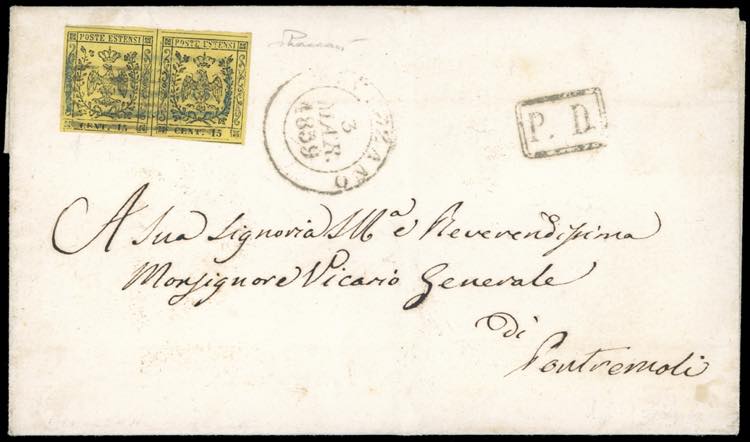 POSTE ESTENSI POSTE ESTENSI
CENT. 15 CENT. 15
3
MAR.
1859
P. D.
A Sua Signoria Illma e Reverendissima
Monsignore Vicario Generale
di
Pontremoli